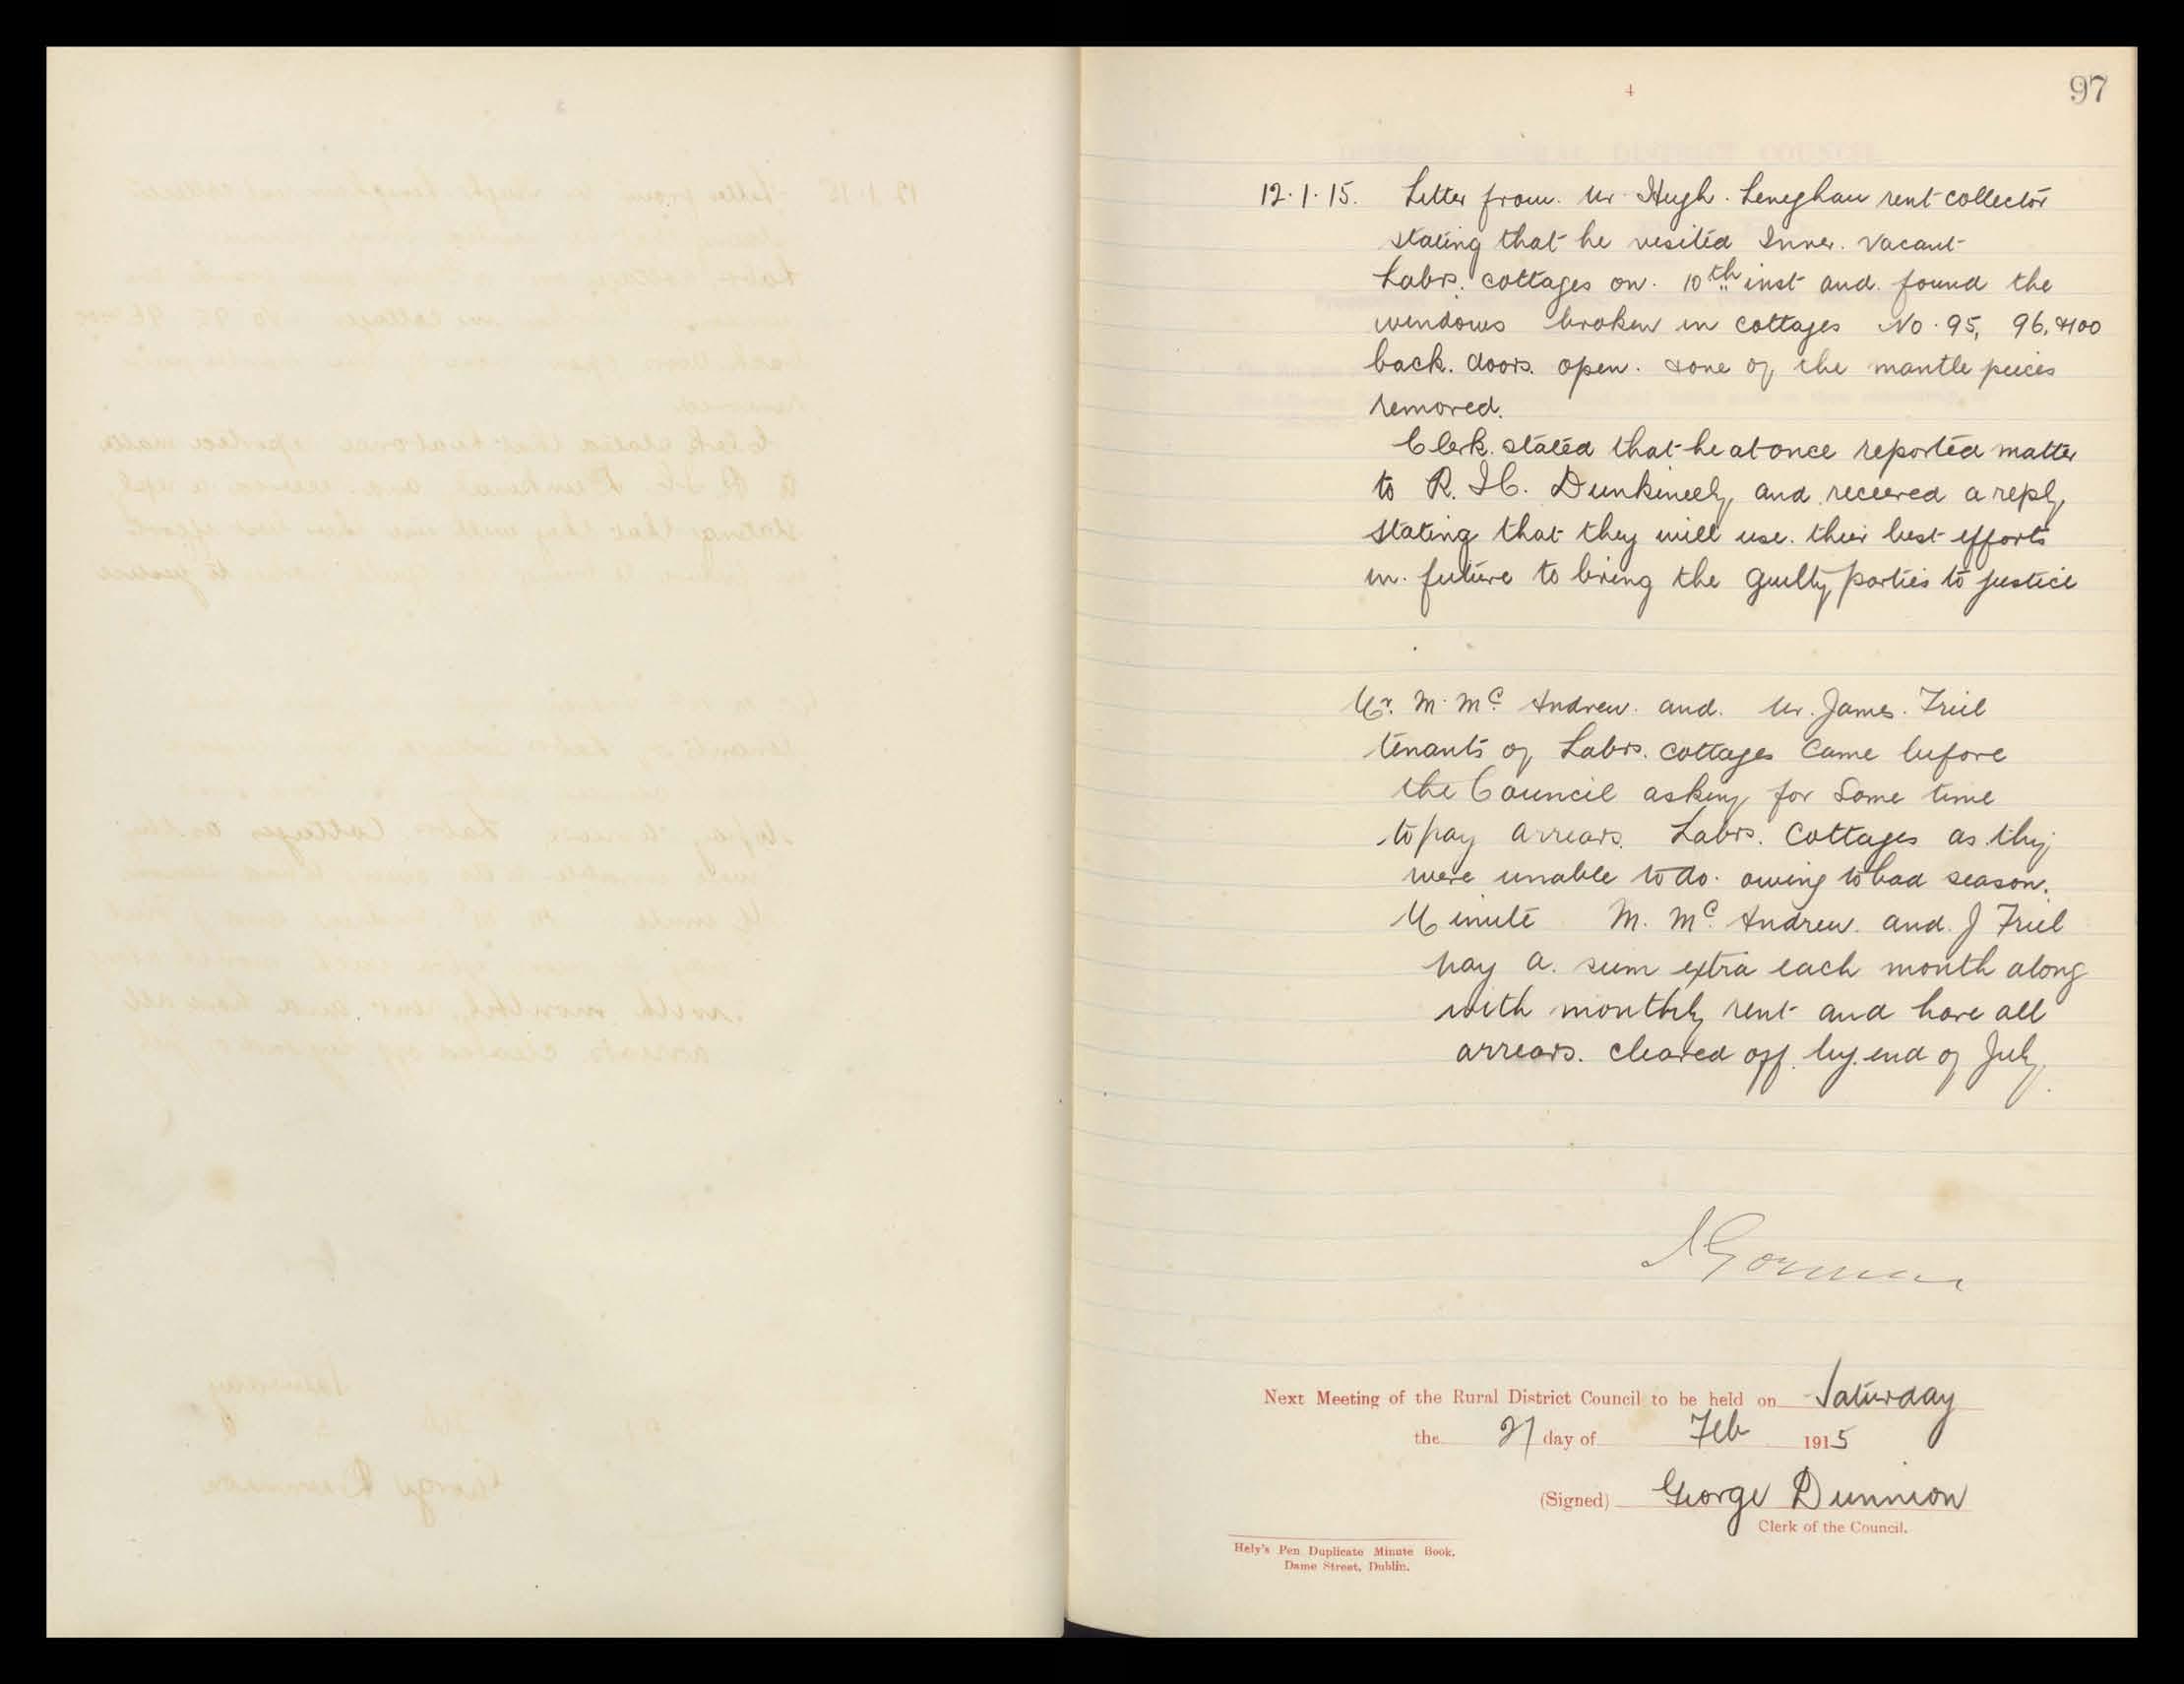 4
97
12.1.15. Letter from. Mr Hugh. Leneghan rent collector
stating that he visited Inver. Vacant
Labrs. cottages on. 10th inst and. found the
windows broken in cottages No. 95, 96, &100
back. doors. open. &one of the mantle peices
removed.
Clerk. stated that he at once reported matter
to R. I C. Dunkineely and received a reply
stating that they will use. their best efforts
in. future to bring the guilty parties to justice
Mr. M. Mc Andrew. and. Mr. James. Friel
tenants of Labrs. cottages came before
the Council asking for Some time
to pay arrears. Labrs. Cottages as they
were unable to do. owing to bad season.
Minute M. Mc Andrew. and. J Friel
pay a. sum extra each month along
with monthly rent and have all
arrears. cleared off. by. end of July.
Gorman
Next Meeting of the Rural District Council to be held on Saturday
the 27 day of Feb 1915
(Signed) George Dunnion
Clerk of the Council.
Hely's Pen Duplicate Minute Book.
Dame Street, Dublin.